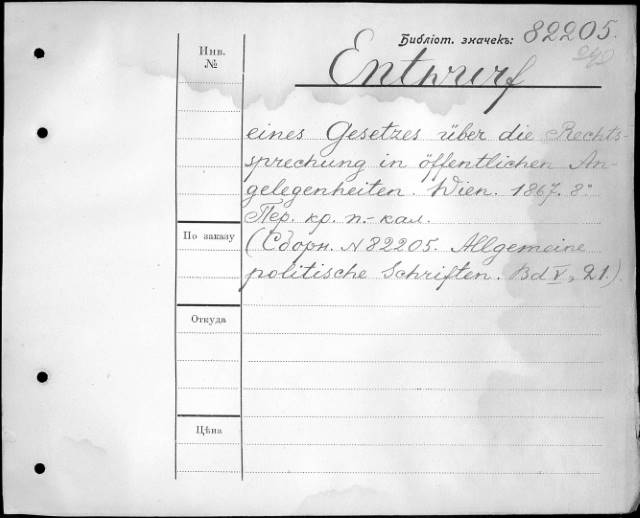 Библіот. значекъ: 82205.
Инв.
№
Entwurf
eines Gesetzes über die Rechts-
sprechung in öffentlichen An-
gelegenheiten. Wien. 1867. 8°
Пер. кр. п.-кал.
По заказу
(Сборн. N 82205. Allgemeine
politische Schriften. Bd V, 21.)
Откуда
Цѣна